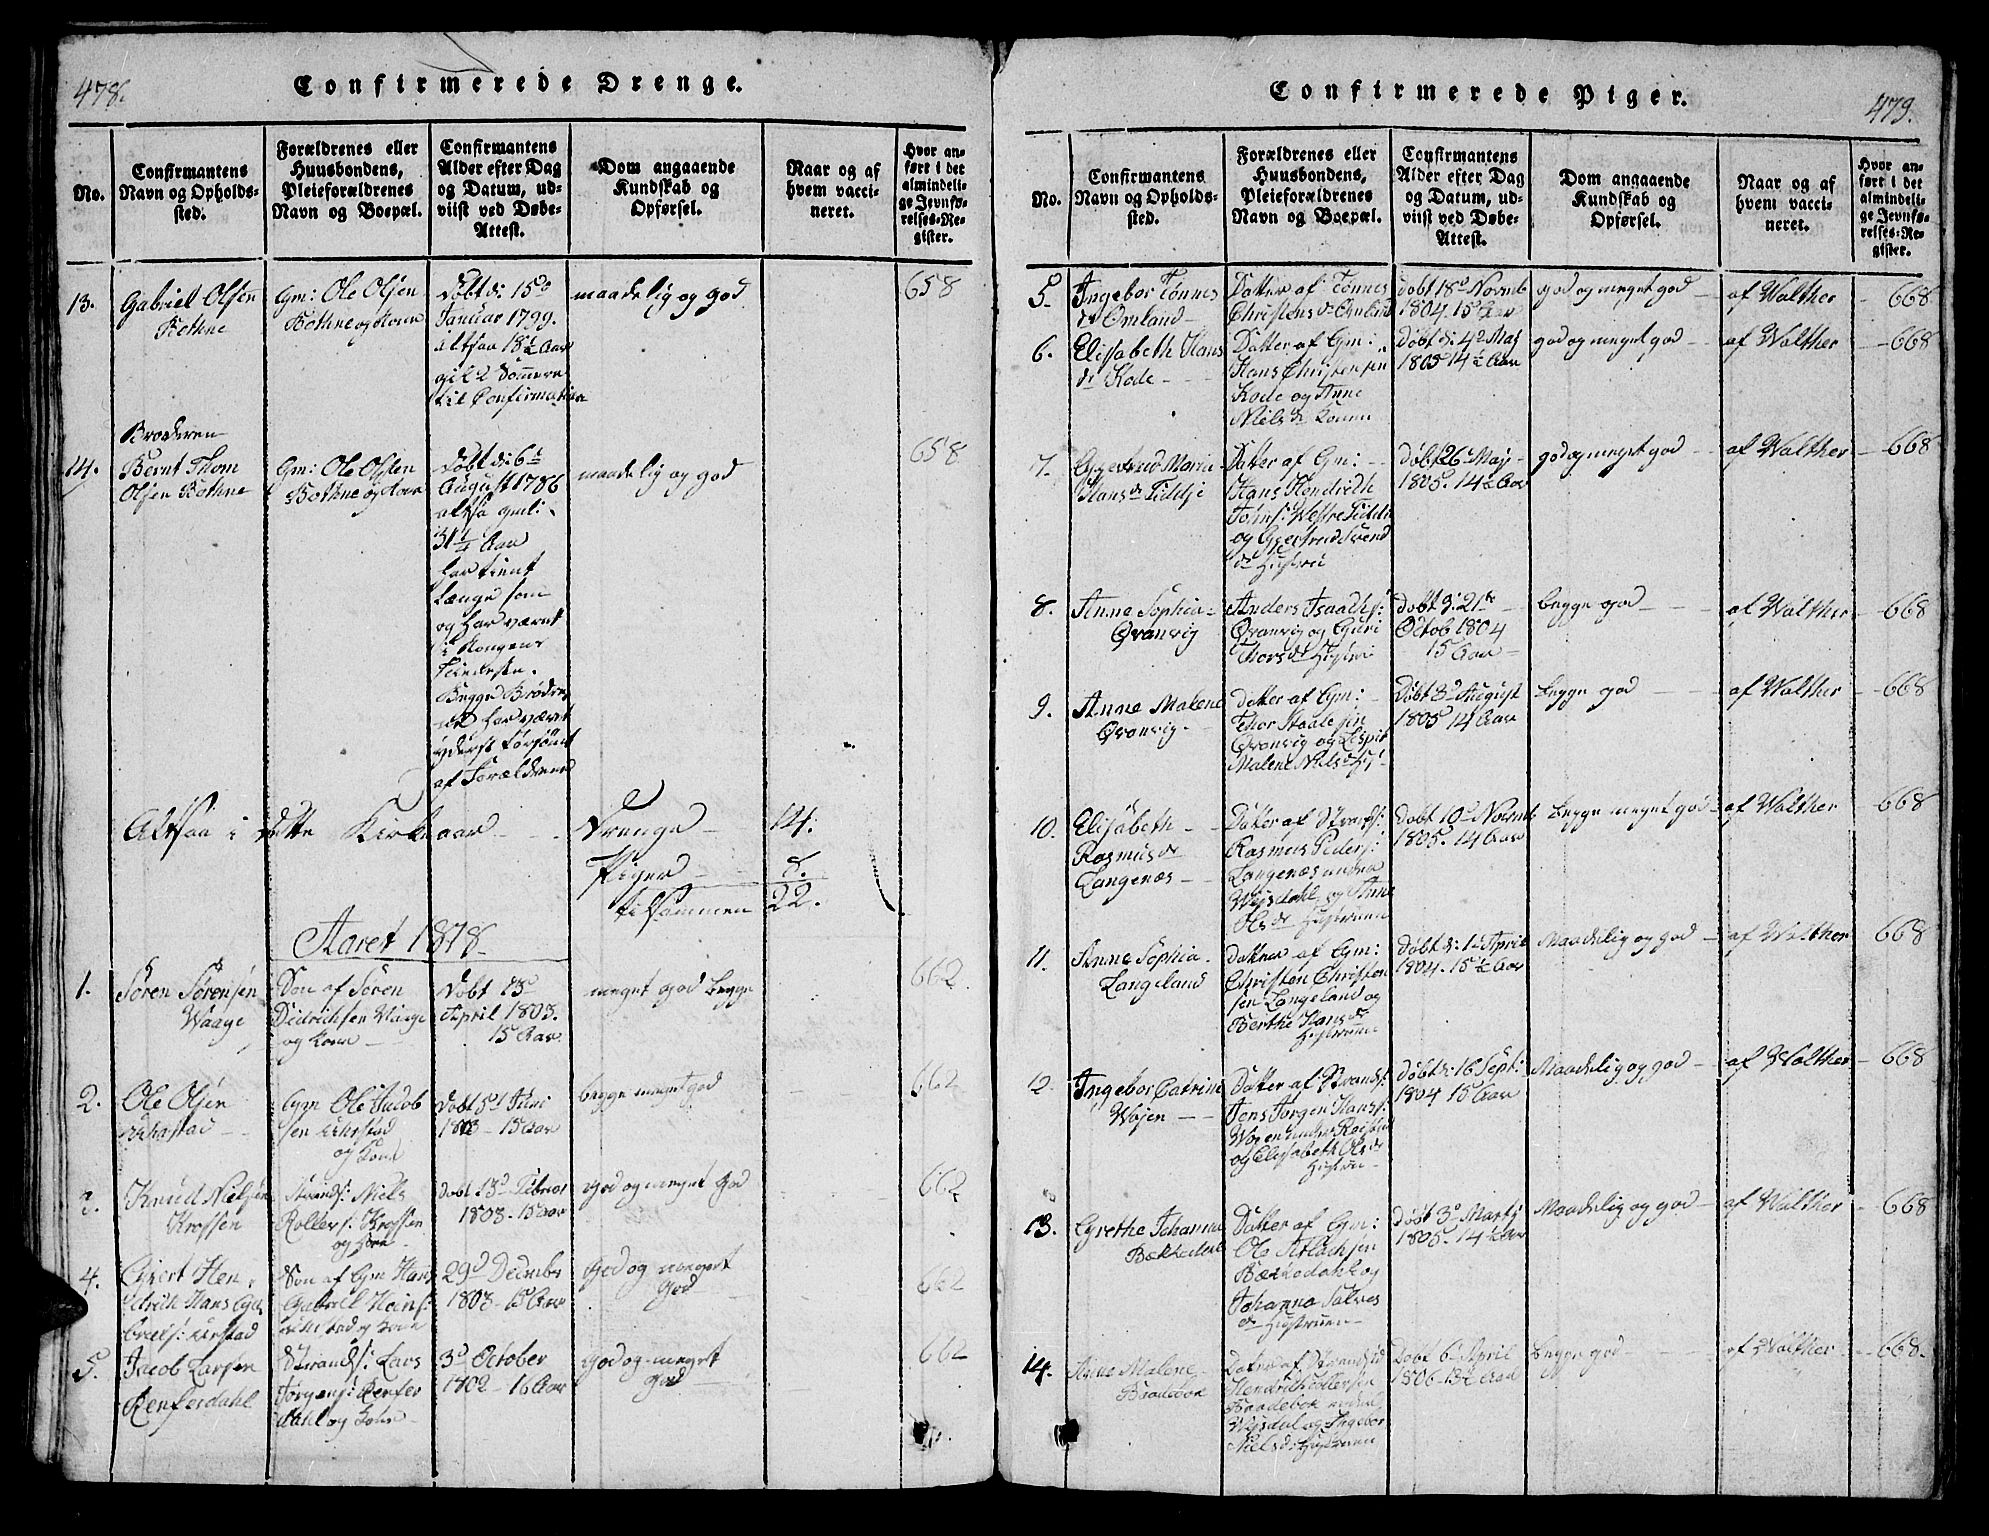 478.
Confirmerede Drenge.
No.
Confirmantens
Navn og Opholds-
sted.
Forældrenes eller
Huusbondens,
Pleieforældrenes
Navn og Boepæl.
Confirmantens
Alder efter Dag
og Datum, ud-
viist ved Døbe-
Attest.
Dom angaaende
Kundskab og
Opførsel.
Naar og af
hvem vacci-
neret.
Hvor an-
ført i det
almindeli-
ge Jevnfø-
relses-Re-
gister.
13.
Gabriel Olsen
Bothne
Gm: Ole Olsen
Bothne og Kone
Døbt d: 15d
Januar 1799.
altsaa 18½ Aar
gik 2 Somere
til Confirmation
maadelig og god
658
14.
Broderen
Bernt Thom
Olsen Bothne
Gm: Ole Olsen
Bothne og Kone
Døbt d: 6d
August 1786
altsa gml:
31¼ Aar
har tient
længe som
og har været
i Kongens
Tieneste.
Begge Brødre
har været
yderst forsømt
af Forældrene
maadelig og god
658
Altsaa i dette Kirkeaar
Drenge 14.
Piger 8.
tilsammen 22.
Aaret 1818
1.
Søren Sørensen
Waage
Søn af Søren
Didrichsen Waage
og Kone
Døbt 13d
April 1803.
15 Aar
meget god begge
662
2.
Ole Olsen
Gm Ole Jacob
sen
og Kone
Døbt 5d Juni
1803 - 15 Aar
begge meget god
662
3.
Knud Nielsen
Krossen
Strands: Niels
Rollefs: Krossen
og Kone
Døbt 13d Februar
1803 - 15 Aar
God og meget God
662
4.
Evert Hen
drich Hans Ga
briels:
Søn af Gm Hans
Gabriel Heins:
og Kone
29d Decembr
1803 - 15 Aar
God og meget
God
662
5.
Jacob Larsen
Renferdahl
Strands: Lars
Jørgens: Renfer
dahl og Kone
3d October
1802 - 16 Aar
God og meget
God
662
Confirmerede Piger.
479.
No.
Confirmantens
Navn og Opholds-
sted.
Forældrenes eller
Huusbondens,
Pleieforældrenes
Navn og Boepæl.
Confirmantens
Alder efter Dag
og Datum, ud-
viist ved Døbe-
Attest.
Dom angaaende
Kundskab og
Opførsel.
Naar og af
hvem vacci-
neret.
Hvor an-
ført i det
almindeli-
ge Jevnfø-
relses-Re-
gister.
5.
Ingebor Tønnes
dr Omland
Datter af Tønnes
Christens dr Omland
døbt 18d Novemb
1804. 15 Aar
god og meget god
af Walther
668
6.
Elisabeth Hans
dr Kode
Datter af Gm:
Hans Christensen
Kode og Anne
Niels dr Konen
Døbt d: 4d Maj
1805 14½ Aar
god og meget god
af Walther
668
7.
Gjertrud Maria
Hans dr Tiddje
Datter af Gm:
Hans Hendrich
Johns: Westre Tiddje
og Gjertrud Svend
dr Hustrue
Døbt 26 Maj
1805. 14½ Aar
god og meget god
af Walther
668
8.
Anne Sophia
Qvanvig
Anders Isaachs:
Qvanvig og Guri
Thors dr Hustrue
Døbt d: 21de
Octob 1804
15 Aar
begge god
af Walther
668
9.
Anne Malene
Qvanvig
datter af Gm:
Thor Staalesen
Qvanvig og Lispit
Malene Niels dr Hustr
Døbt 3d August
1805 14 Aar
begge god
af Walther
668
10.
Elisabeth
Rasmus dr
Langenæs
Datter af Strands:
Rasmus Peders:
Langenæs under
Wejsdahl og Anne
Ols dr Hustruen
Døbt 10d Novemb
1805. 14 Aar
begge meget god
af Walther
668
11.
Anne Sophia
Langeland
datter af Gm:
Christen Christen
sen Langeland og
Berthe Hans dr
Hustruen
Døbt d: 1 April
1804. 15½ Aar
Maadelig og god
af Walther
668
12.
Ingebor Catrine
Wojen
Datter af Strands:
Jens Jørgen Hans:
Wojen under
og Elisabeth Ols dr
Hustruen
Døbt d: 16 Sept:
1804 15 Aar
Maadelig og god
af Walther
668
13.
Grethe Johanna
Datter af Gm:
Ole Atlachsen
og
Johanna Salves
dr Hustruen
Døbt 3d Martj
1805. 14½ Aar
Maadelig og god
af Walther
668
14.
Anne Malene
Braadebok
Dater af Strandsid
Hendrich Tollefsen
Braadebok under
Wejsdal og Ingebor
Niels d: Hustruen
Døbt 6d April
1806 - 13½ Aar
Begge god
af Walther
668.